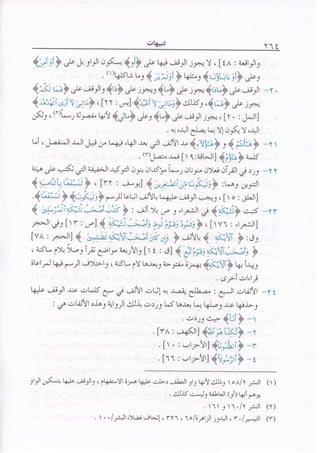 ٢٦٤ تنبيهات
والواقعة : ٤٨] ، لا يجوز الوقف فيها على ﴿أَوَ﴾ بسكون الواو بل على ﴿أَوَلَيْسَ﴾
وعلى ﴿أَوَءَابَآؤُنَا﴾ ومثلها ﴿أَوَلَمْ يَرَ﴾ وما شاكلها(١) .
٢٠- الوقف على ﴿مَاذَا﴾ يجوز على ﴿مَا﴾ ويجوز على ﴿ذَا﴾ والوقف على ﴿فَمَا لَكُمْ﴾
يجوز على ﴿فَمَا﴾ ، وكذلك ﴿وَمَالِىَ لَآ أَعْبُدُ﴾ [يس : ٢٢] ، ﴿مَالِىَ لَآ أَرَى ٱلْهُدْهُدَ﴾
[النمل : ٢٠] ، يجوز الوقف على ﴿مَا﴾ وعلى ﴿مَالِيَ﴾ لأنها مفصولة رسماً(٢) ، ولكن
البدء لا يكون إلا بما يصلح البدء به .
٢١- ﴿هَـٰٓأَنتُمْ﴾ و ﴿هَـٰٓؤُلَآءِ﴾ مد الألف التي بعد الهاء فيهما من قبيل المد المنفصل ، أما
كلمة ﴿هَآؤُمُ﴾ [الحاقة : ١٩] فمد متصل(٣) .
٢٢- ورد في القرآن فعلان منونان رسماً مؤكدان بنون التوكيد الخفيفة التي تكتب على هيئة
التنوين وهما : ﴿وَلَيَكُونًا مِّنَ ٱلصَّـٰغِرِينَ﴾ [يوسف : ٣٢] ، ﴿لَنَسْفَعًۢا بِٱلنَّاصِيَةِ﴾
[العلق : ١٥] ، ويجب الوقف عليهما بالألف اتباعا للرسم ﴿وَلَيَكُونَا﴾ ﴿لَنَسْفَعَا﴾ .
٢٣- كتبت ﴿لْـَٔيْكَةِ﴾ في الشعراء و ص بلا ألف : ﴿كَذَّبَ أَصْحَـٰبُ لْـَٔيْكَةِ ٱلْمُرْسَلِينَ﴾
[الشعراء : ١٧٦] ، ﴿وَثَمُودُ وَقَوْمُ لُوطٍ وَأَصْحَـٰبُ لْـَٔيْكَةِ﴾ [ص : ١٣] وفي الحجر
وق : ﴿ٱلْأَيْكَةِ﴾ بالألف ﴿وَإِن كَانَ أَصْحَـٰبُ ٱلْأَيْكَةِ لَظَـٰلِمِينَ﴾ [الحجر : ٧٨]
﴿وَأَصْحَـٰبُ ٱلْأَيْكَةِ وَقَوْمُ تُبَّعٍ﴾ [ق : ١٤] والأربعة مواضع تقرأ وصلاً بلام ساكنة ،
ويبدأ بها ﴿ٱلْأَيْكَةِ﴾ بهمزة مفتوحة وبعدها لام ساكنة ، واختلاف الرسم فيها لمراعاة
قراءات أخرى .
٢٤- الألفات السبع : مصطلح يقصد به إثبات الألف في سبع كلمات عند الوقف عليها
وحذفها عند وصلها بما بعدها كما وردت بذلك الرواية وهذه الألفات هي :
١- ﴿أَنَا۠﴾ حيث وردت .
٢- ﴿لَّـٰكِنَّا۠ هُوَ ٱللَّهُ﴾ [الكهف : ٣٨] .
٣- ﴿ٱلظُّنُونَا۠﴾ [الأحزاب : ١٠] .
٤- ﴿ٱلرَّسُولَا۠﴾ [الأحزاب : ٦٦] .
(١) النشر ١٥٨/٢ وذلك لأنها واو العطف دخلت عليها همزة الاستفهام ، والوقف عليها بتسكين الواو
يوهم أنها (أو) العاطفة وليست كذلك .
(٢) النشر ١٦٠/٢ و ١٦١ .
(٣) التيسير/٣٠ ، البدور الزاهرة/٦٥ ، ٣٢٦ ، إتحاف فضلاء البشر/١٠٠ .